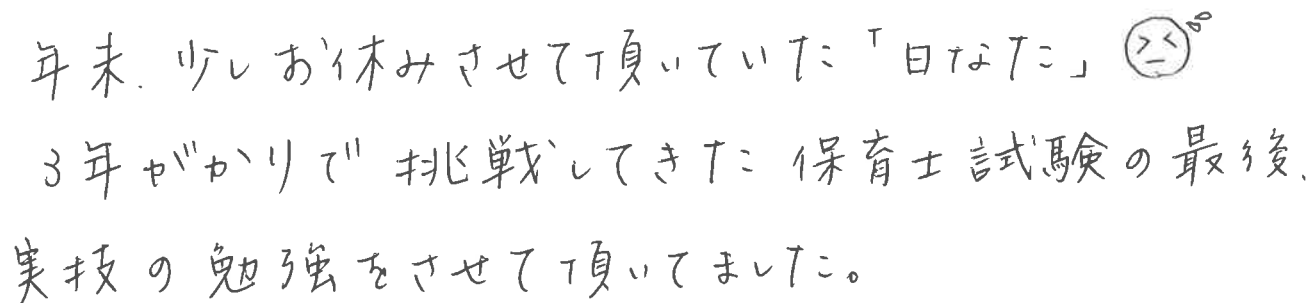 年末、少しお休みさせて頂いていた「日なた」
3年がかりで挑戦してきた保育士試験の最後、
実技の勉強をさせて頂いてました。